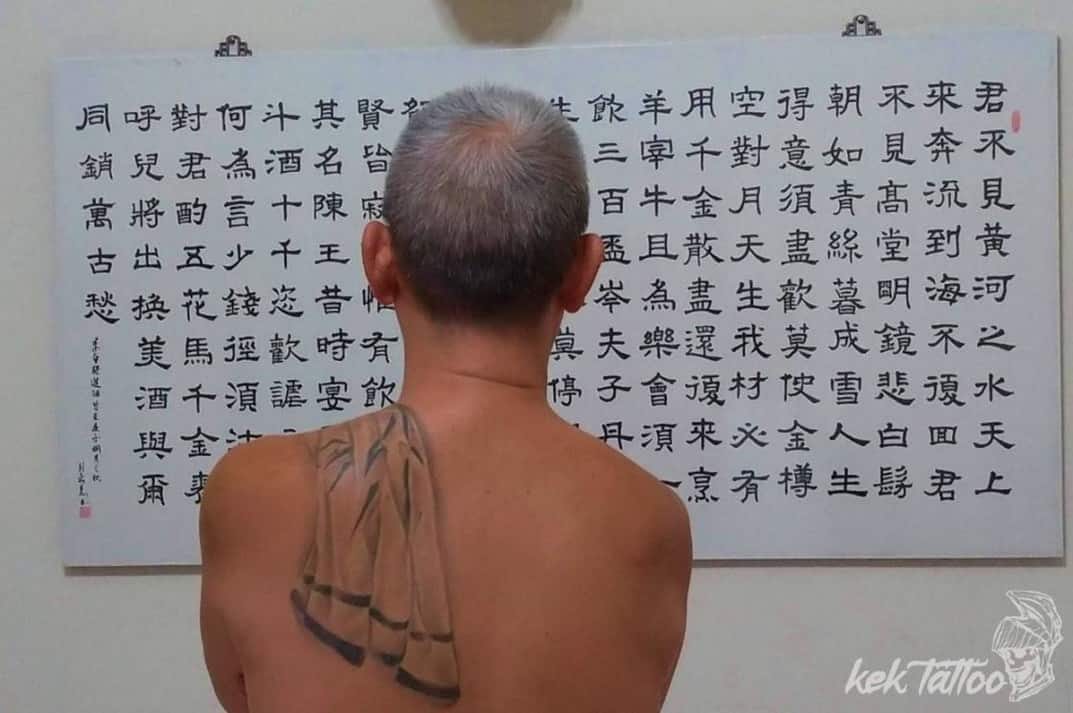 君不見黃河之水天上
來奔流到海不復回君
不見髙堂明鏡悲白髮
朝如青絲暮成雪人生
得意須盡歡莫使金樽
空對月天生我材必有
用千金散盡還復來烹
羊宰牛且為樂會須一
飲三百盃岑夫子丹
生莫停
賢皆寂惟有飲
其名陳王昔時宴
斗酒十千恣歡謔
何為言少錢徑須沽
對君酌五花馬千金裘
呼兒將出換美酒與爾
同銷萬古愁
kek Tattoo